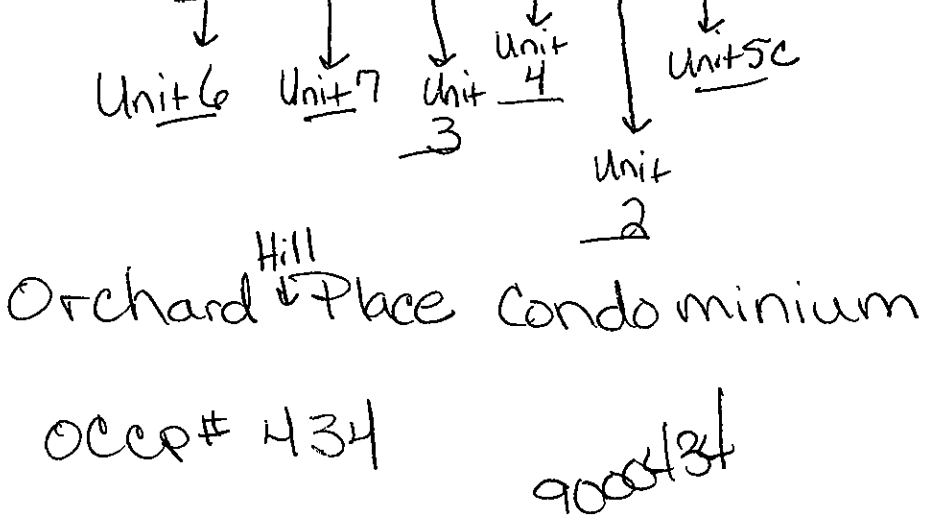 Unit 6 Unit 7 Unit 3 Unit 4 Unit 2 Unit 5C
Hill
Orchard Place Condominium
OCCP# 434
9000434